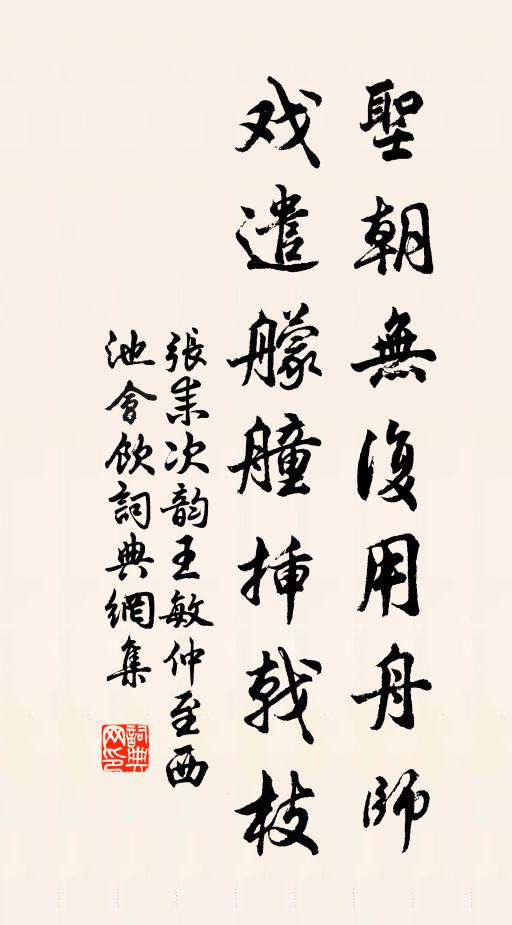 聖朝無復用舟師
戏遣艨艟挿戟枝
張耒次韵王敏仲至西
池會飲詞典網集
詞典網印